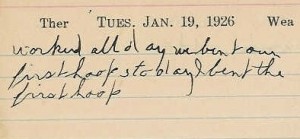 Ther TUES. JAN. 19, 1926 Wea
worked all day we bent our
first hoops to day I bent the
first hoop